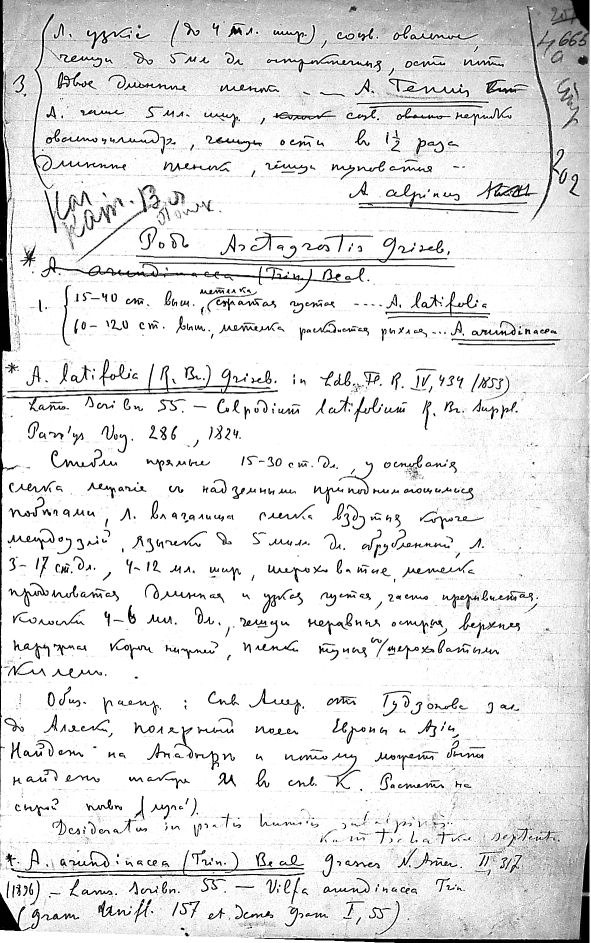 Л. узкіе (до 4 мл. шир), соцв. овальное,
чешуи до 5 мл дл остроконечныя, ости почти
3. вдвое длиннее пленки --- A. Tenuis
Л. чаще 5 мл. шир, соцв. нередко
овальноцилиндр, ости во 1½ раза
длиннее пленки, чешуи туповатые --
A alpinus
Родъ Arctagrostis Griseb.
* A. arundinacea (Trin) Beal.
1. 15-40 ст. выш, метелка сжатая густая ---- A. latifolia
60-120 ст. выш, метелка раскидистая рыхлая --- A. arundinacea
* A. latifolia (R. Br.) Griseb. in Ldb. Fl. R. IV, 434 (1853)
Lams. Scribn 55. - Colpodium latifolium R. Br. Suppl.
Parr'ys Voy. 286, 1824.
Стебли прямые 15-30 ст. дл, у основанія
слегка лежачіе съ надземными приподнимающимися
побѣгами, л. влагалища слегка вздутыя короче
междоузлій, язычекъ до 5 мил. дл. обрубленный, л.
5-17 ст. дл., 4-12 мл. шир, шероховатые, метелка
продолговатая длинная и узкая густая, часто прерывистая,
колоски 4-6 мл. дл., чешуи неравныя острыя, верхняя
наружная короче нижней, пленки тупыя съ шероховатымъ
килемъ.
Общ. распр.: Сѣв Амер. отъ Гудзонова зал
до Аляски, полярный поясъ Европы и Азіи,
Найденъ на Анадырѣ и потому можетъ быть
найденъ также и во сѣв. К. Растетъ на
сырой почвѣ (луга).
Desideratus in pratis humidis subalpinis
Kamtschatka septentr.
* A. arundinacea (Trin.) Beal Grasses N. Amer. II, 317
(1896) - Lams. Scribn. 55. - Vilfa arundinacea Trin
(gram Unifl. 157 et Icones gram I, 55).
202